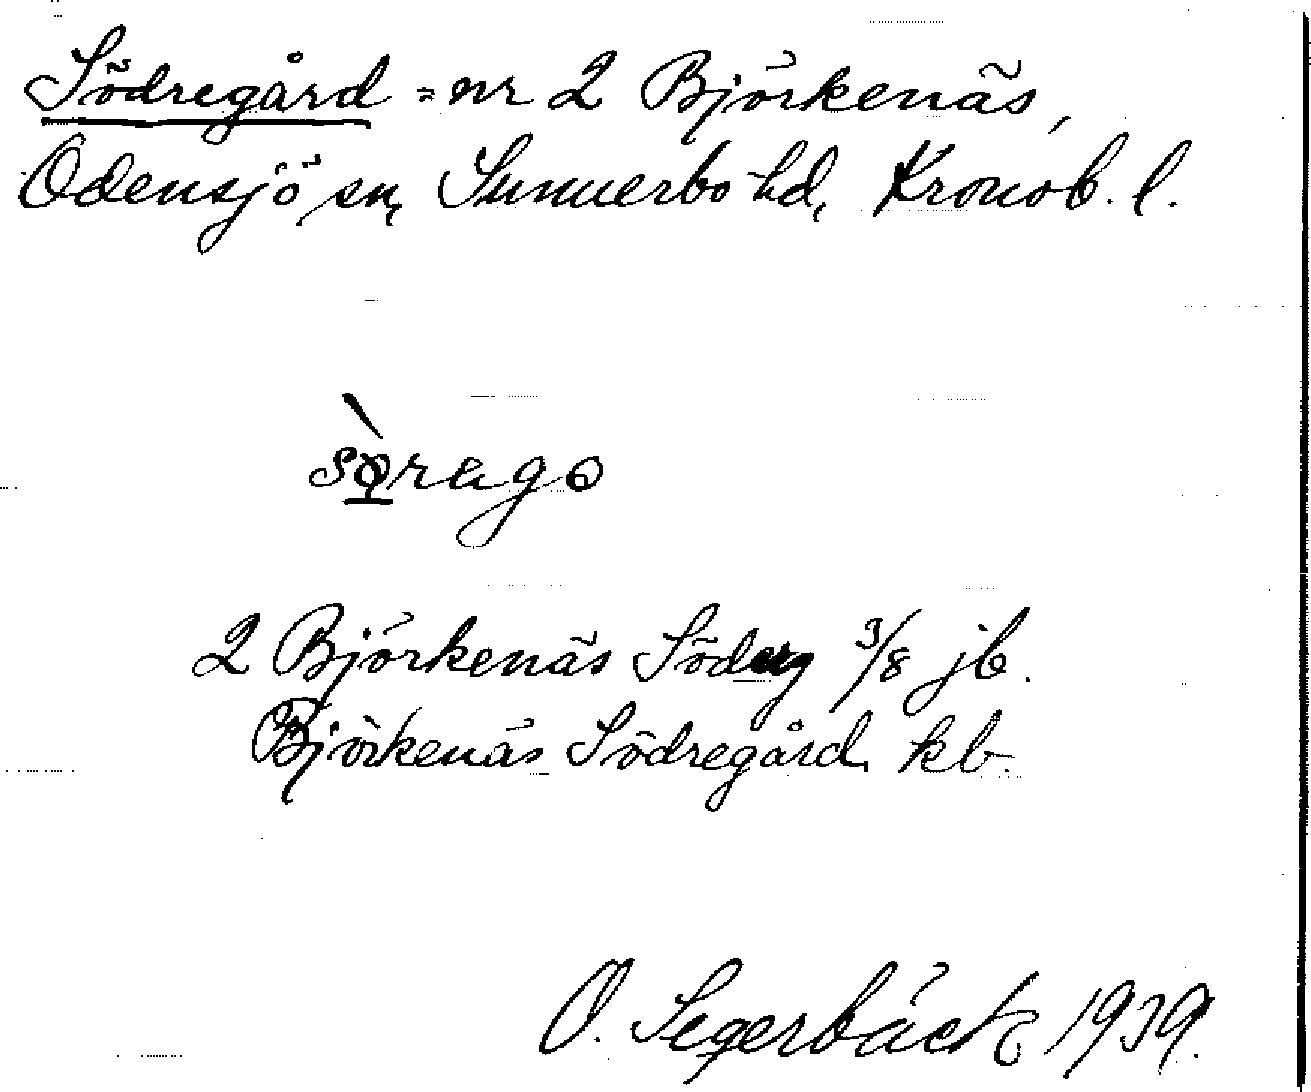 Södregård = nr 2 Björkenäs,
Odensjö sn, Sunnerbo hd, Kronob. l.
2 Björkenäs Söderg 3/8 jb.
Björkenäs Södregård kb.
O. Segerbäck 1939.